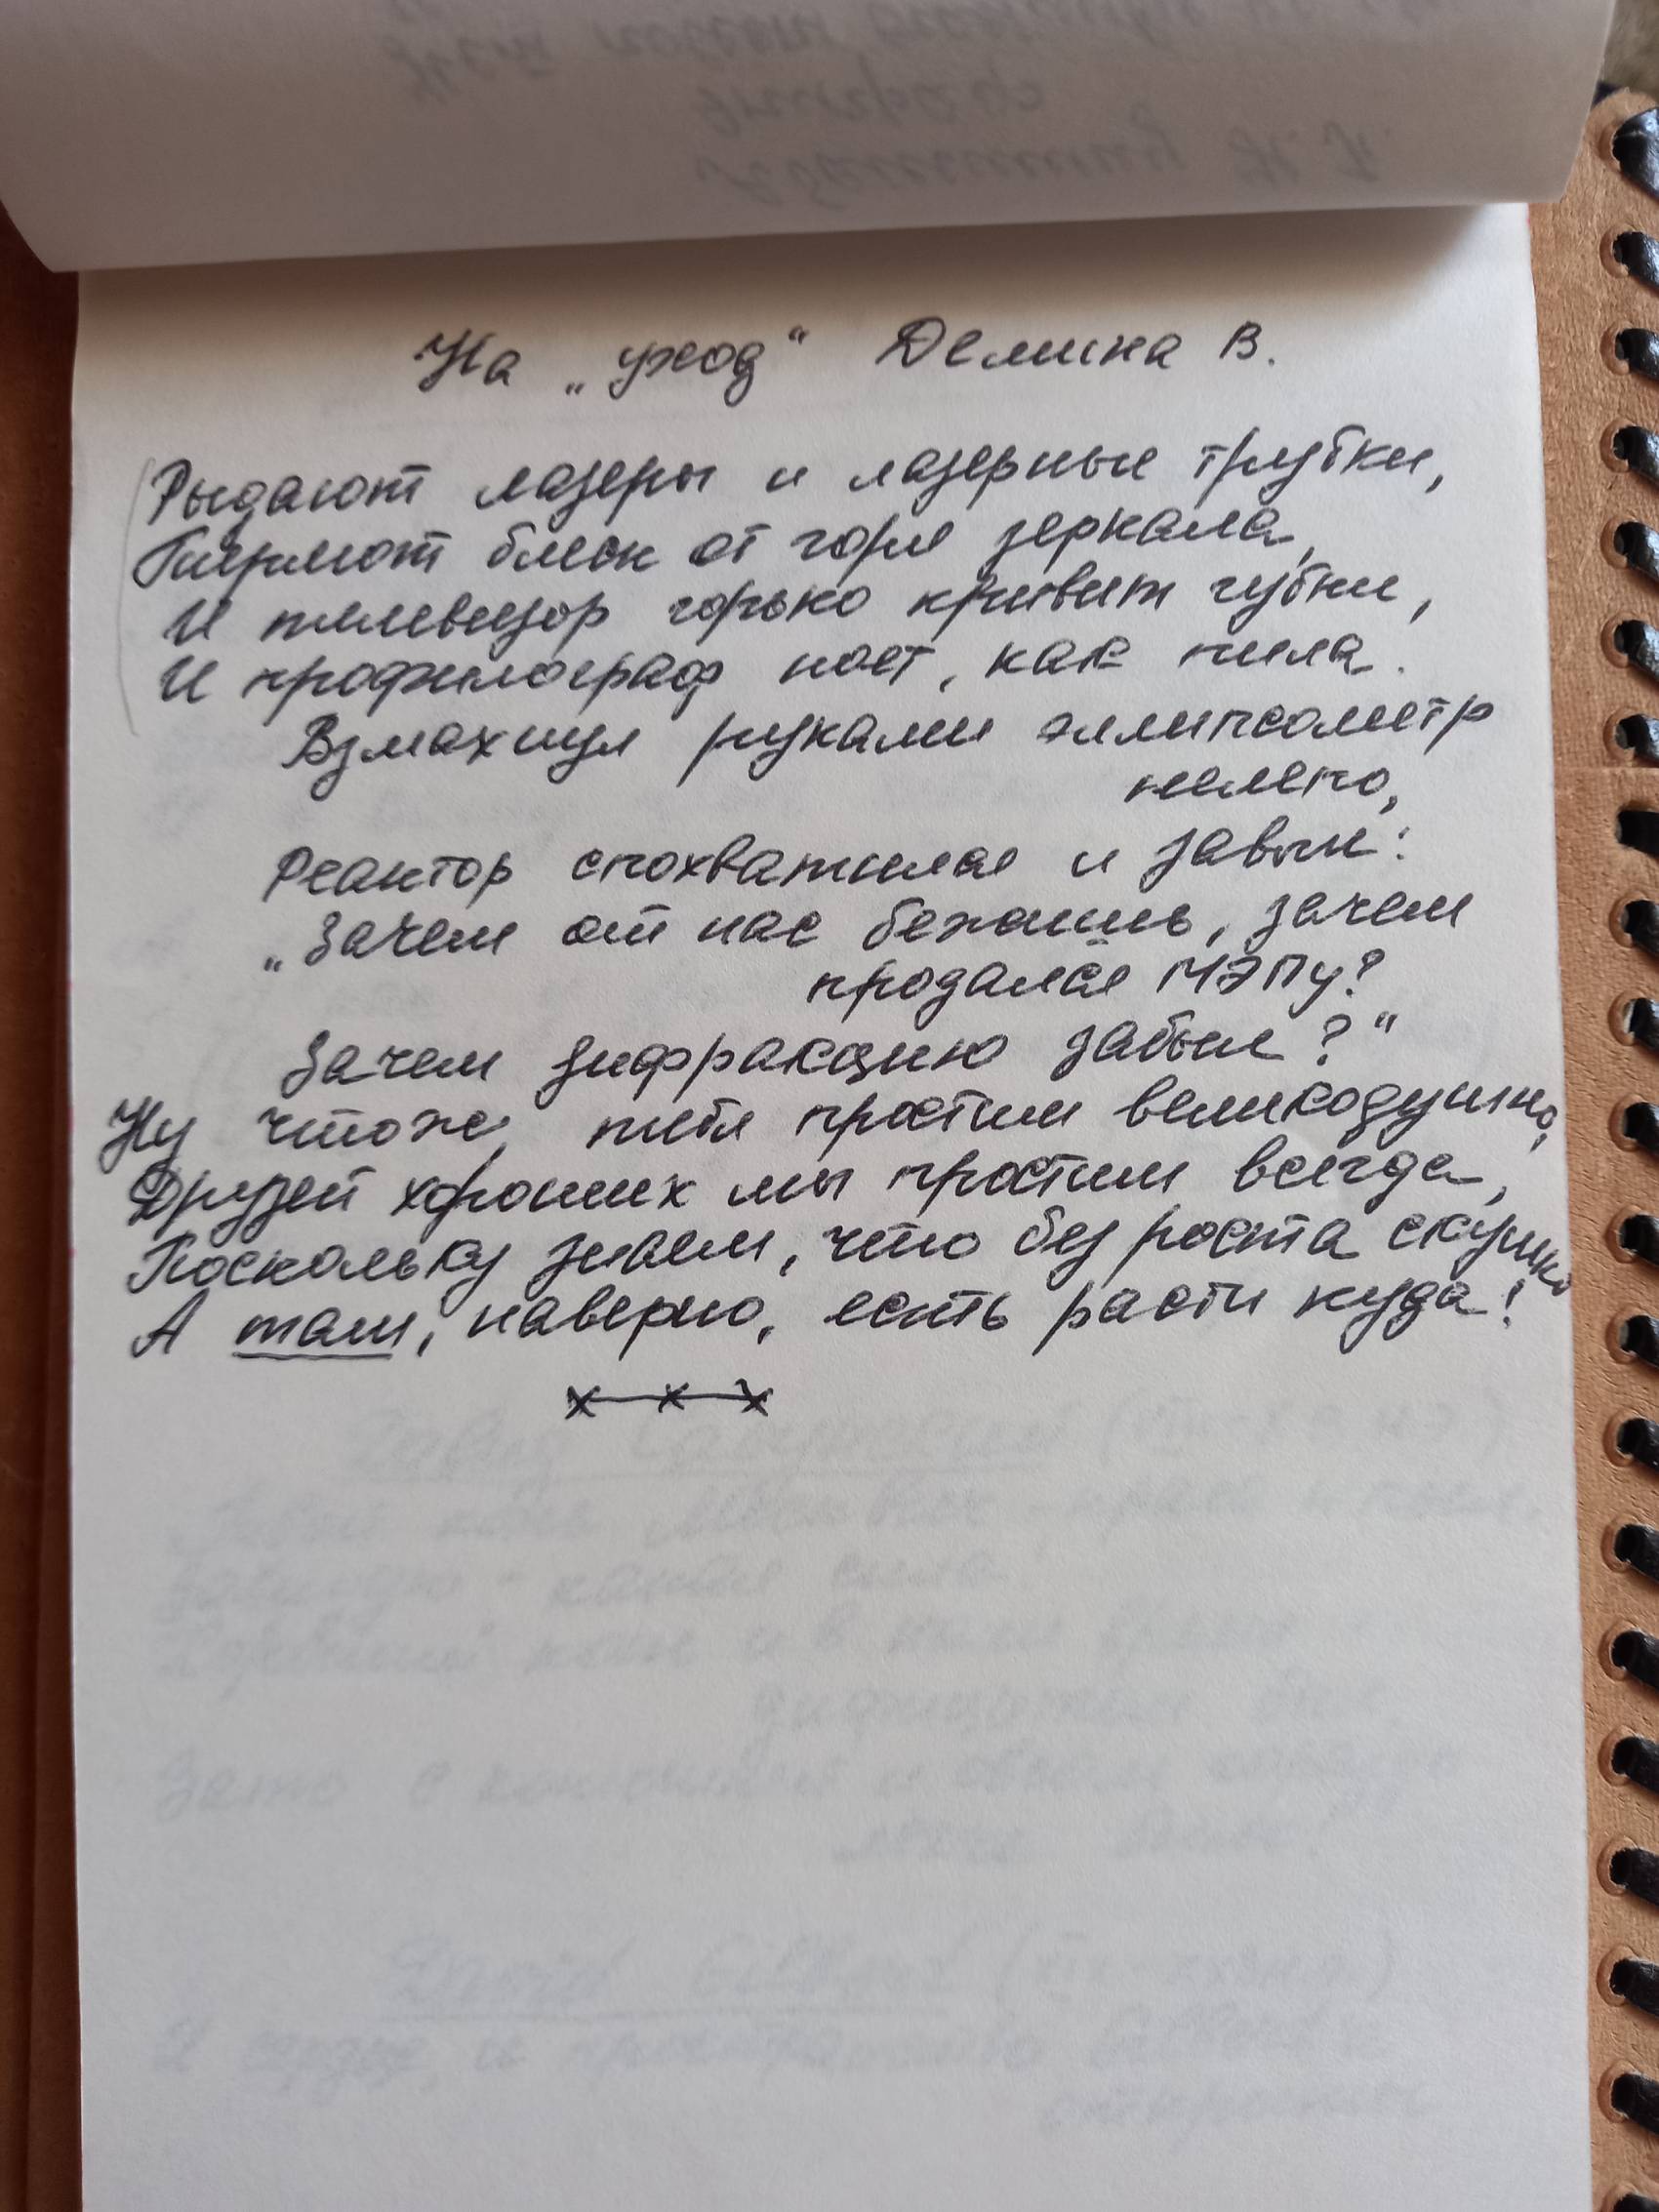 На „уход“ Демина В.
Рыдают лазеры и лазерные трубки,
Теряют блеск от горя зеркала,
И телевизор горько кривит губки,
И профилограф поет, как пила.
Взмахнул руками эллипсометр
нелепо,
Реактор спохватился и завыл:
„Зачем от нас бежишь, зачем
продался МЭПу?
Зачем дифракцию забыл?“
Ну чтоже, тебя простим великодушно,
Друзей хороших мы простим всегда,
Поскольку знаем, что без роста скучно
А там, наверно, есть расти куда!